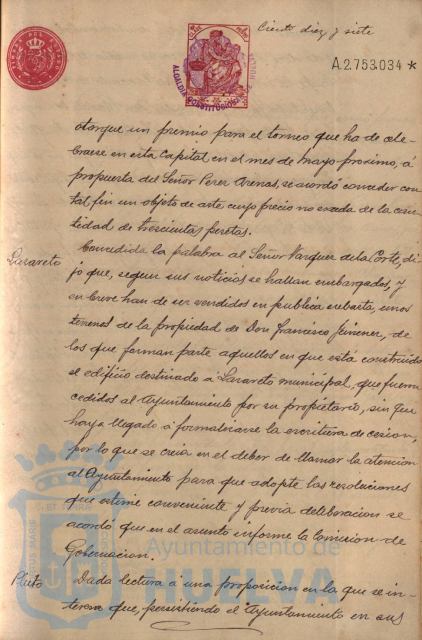 Ciento diez y siete
A2.753.034 *
ALCALDIA CONSTITUCIONAL DE HUELVA
otorgue un premio para el torneo que ha de cele-
brarse en esta Capital en el mes de Mayo proximo, á
propuesta del Señor Perez Arenas, se acordó conceder con
tal fin un objeto de arte cuyo precio no exceda de la can-
tidad de trescientas pesetas.
Lazareto
Concedida la palabra al Señor Vazquez de la Corte, di-
jo que, segun sus noticias se hallan embargados, y
en breve han de ser vendidos en publica subasta, unos
terrenos de la propiedad de Don Francisco Jimenez, de
los que forman parte aquellos en que está construido
el edificio destinado á Lazareto municipal, que fueron
cedidos al Ayuntamiento por su propietario, sin que
haya llegado á formalizarse la escritura de cesion,
por lo que se creia en el deber de llamar la atencion
al Ayuntamiento para que adopte las resoluciones
que estime conveniente y previa deliberacion se
acordó que en el asunto informe la Comision de
Gobernacion.
Pleito
Dada lectura a una proposicion en la que se in-
teresa que, persistiendo el Ayuntamiento en sus
Ayuntamiento de
HUELVA